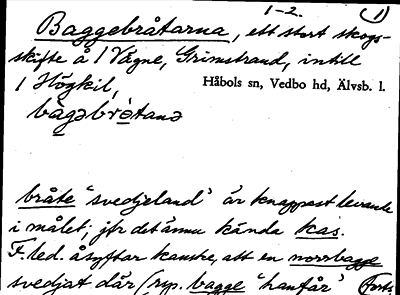 1-2. (1)
Baggebråtarna, ett stort skogs-
skifte å 1 Vägne, Grimstrand, intill
1 Högkil,
Håbols sn, Vedbo hd, Älvsb. l.
bàgəbròtanə
bråte "svedjeland" är knappast levande
i målet; jfr det ännu kända kas.
F.led. åsyftar kanske, att en norrbagge
svedjat där (resp. bagge "hanfår" (Forts.